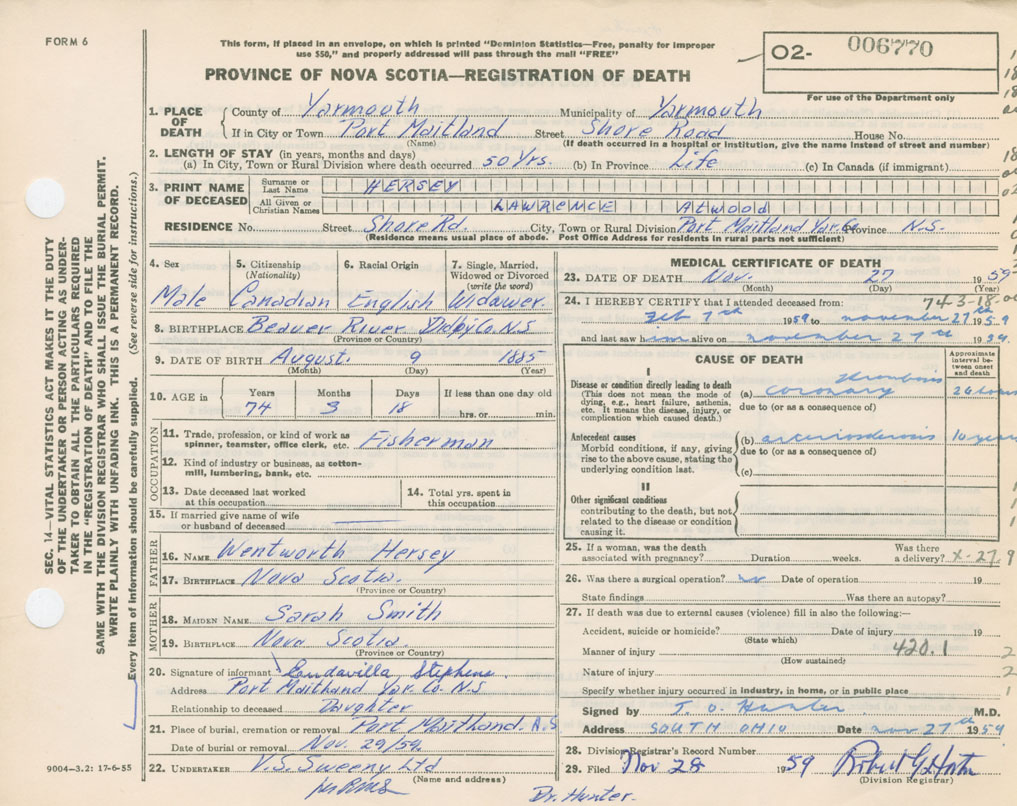 FORM 6
This form, if placed in an envelope, on which is printed "Dominion Statistics—Free, penalty for improper
use $50," and properly addressed will pass through the mail "FREE"
O2- 006770
PROVINCE OF NOVA SCOTIA—REGISTRATION OF DEATH
For use of the Department only
SEC. 14—VITAL STATISTICS ACT MAKES IT THE DUTY
OF THE UNDERTAKER OR PERSON ACTING AS UNDER-
TAKER TO OBTAIN ALL THE PARTICULARS REQUIRED
IN THE "REGISTRATION OF DEATH" AND TO FILE THE
SAME WITH THE DIVISION REGISTRAR WHO SHALL ISSUE THE BURIAL PERMIT.
WRITE PLAINLY WITH UNFADING INK. THIS IS A PERMANENT RECORD.
Every item of information should be carefully supplied. (See reverse side for instructions.)
1. PLACE OF DEATH County of Yarmouth Municipality of Yarmouth
If in City or Town Port Maitland Street Shore Road House No.
(Name) (If death occurred in a hospital or institution, give the name instead of street and number)
2. LENGTH OF STAY (in years, months and days)
(a) In City, Town or Rural Division where death occurred 50 Yrs. (b) In Province Life (c) In Canada (if immigrant)
3. PRINT NAME OF DECEASED Surname or Last Name HERSEY
All Given or Christian Names LAWRENCE Atwood
RESIDENCE No. Street Shore Rd. City, Town or Rural Division Port Maitland Yar. Co Province N.S.
(Residence means usual place of abode. Post Office Address for residents in rural parts not sufficient)
4. Sex 5. Citizenship (Nationality) 6. Racial Origin 7. Single, Married, Widowed or Divorced (write the word)
Male Canadian English Widower.
8. BIRTHPLACE Beaver River Digby Co. N.S
(Province or Country)
9. DATE OF BIRTH August 9 1885
(Month) (Day) (Year)
10. AGE in Years Months Days If less than one day old
74 3 18 hrs. or min.
OCCUPATION
11. Trade, profession, or kind of work as
spinner, teamster, office clerk, etc. Fisherman
12. Kind of industry or business, as cotton-
mill, lumbering, bank, etc.
13. Date deceased last worked
at this occupation
14. Total yrs. spent in
this occupation
15. If married give name of wife
or husband of deceased
FATHER
16. NAME Wentworth Hersey
17. BIRTHPLACE Nova Scotia.
(Province or Country)
MOTHER
18. MAIDEN NAME Sarah Smith
19. BIRTHPLACE Nova Scotia
(Province or Country)
20. Signature of informant Stephens.
Address Port Maitland Yar. Co. N.S
Relationship to deceased Daughter
21. Place of burial, cremation or removal Port Maitland.
Date of burial or removal Nov. 29/59
22. UNDERTAKER V.S. Sweeny Ltd
(Name and address)
9004—3.2: 17-6-55
MEDICAL CERTIFICATE OF DEATH
23. DATE OF DEATH Nov. 27 1959
(Month) (Day) (Year)
24. I HEREBY CERTIFY that I attended deceased from: 74-3-18
Feb 7th 1959 to november 27th 1959
and last saw him alive on november 27th 1959.
CAUSE OF DEATH
Approximate interval between onset and death
I
Disease or condition directly leading to death
(This does not mean the mode of
dying, e.g., heart failure, asthenia,
etc. It means the disease, injury, or
complication which caused death.)
(a) coronary thrombosis
due to (or as a consequence of)
Antecedent causes
Morbid conditions, if any, giving
rise to the above cause, stating the
underlying condition last.
(b) arteriosclerosis 10 years
due to (or as a consequence of)
(c)
II
Other significant conditions
contributing to the death, but not
related to the disease or condition
causing it.
25. If a woman, was the death
associated with pregnancy? Duration weeks. Was there
a delivery? X-27.9
26. Was there a surgical operation? no Date of operation 19
State findings Was there an autopsy?
27. If death was due to external causes (violence) fill in also the following:—
Accident, suicide or homicide? Date of injury 19
(State which)
Manner of injury 420.1
(How sustained)
Nature of injury
Specify whether injury occurred in industry, in home, or in public place
Signed by T. O. Hunter M.D.
Address SOUTH OHIO Date nov 27th 1959
28. Division Registrar's Record Number
29. Filed Nov 28 1959 Robert G.
(Division Registrar)
Dr. Hunter.